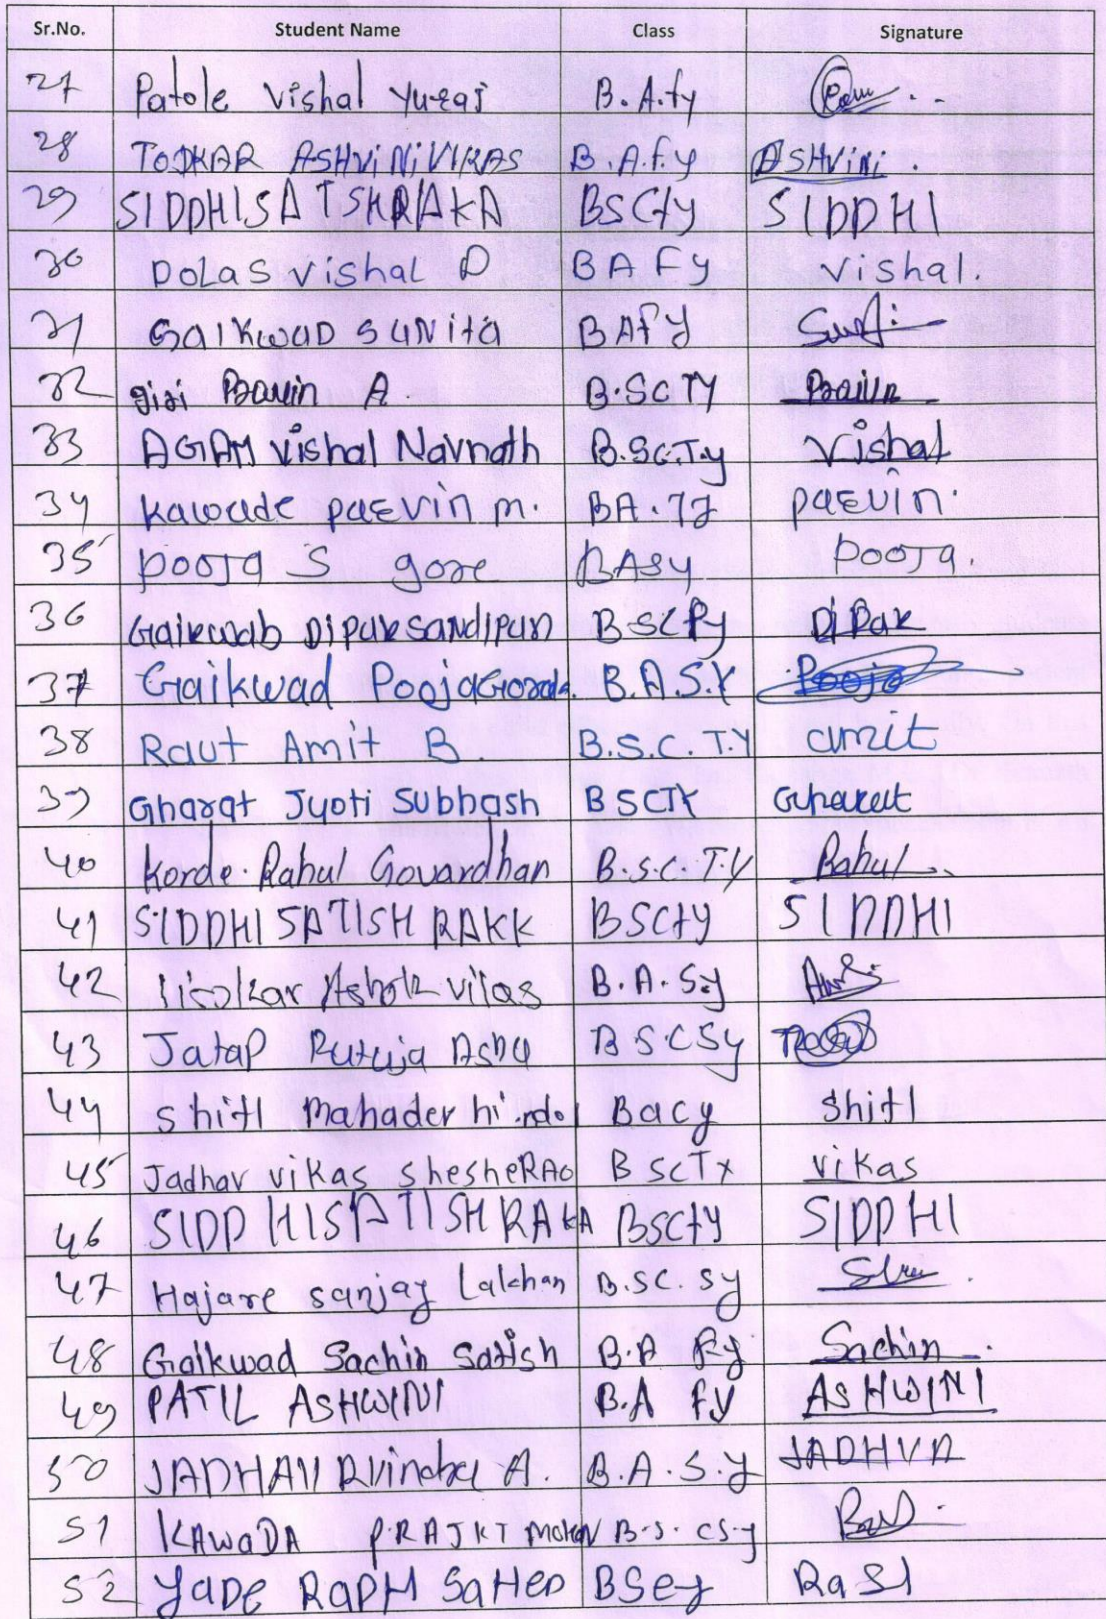 Sr.No. Student Name Class Signature
27 Patole Vishal Yuraj B.A.fy
28 TODKAR ASHViNi VIKAS B.A.f.y ASHViNi.
29 SIDDHI SATSHRAKA BSCty SIDDHI
30 DOLAS vishal D BA Fy vishal.
31 GaIKwaD SUNita BAFY
32 giri Pravin A. B.Sc TY Pravin
33 AGAM vishal Navnath B.Sc.T.y vishal
34 kawade paevin m. BA.Ty paevin.
35 pooja S gore BASy pooja.
36 Gaikwab Dipaksandipan BScfy DiPak
37 Gaikwad Pooja B.A.S.Y Pooja
38 Raut Amit B. B.S.C. T.Y amit
39 Gharat Jyoti Subhash BSCTY Gharat
40 Korde. Rahul Govardhan B.S.C. T.Y Rahul
41 SIDDHI SATISH RAKK BSCty SIDDHI
42 Ashok vilas B.A. S.y
43 Jatap Rutuja B S C Sy
44 shitl Mahader Bacy shitl
45 Jadhav vikas shesheRAO B ScTy vikas
46 SIDDHI SATISH RAKA BSCty SIDDHI
47 Hajare sanjay Lalchan B.SC. Sy
48 Gaikwad Sachin Satish B.A Fy Sachin
49 PATIL ASHWINI B.A Fy ASHWINI
50 JADHAV A. B.A.S.y JADHVA
51 KAwaDA PRAJKT B.S. CSy
52 YaDe SaHeb